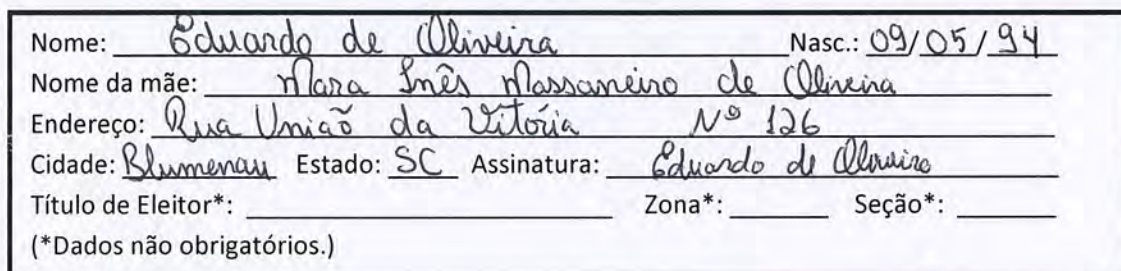 Nome: Eduardo de Oliveira Nasc.: 09/05/94
Nome da mãe: Mara Inês Massaneiro de Oliveira
Endereço: Rua União da Vitória Nº 126
Cidade: Blumenau Estado: SC Assinatura: Eduardo de Oliveira
Título de Eleitor*: Zona*: Seção*:
(*Dados não obrigatórios.)